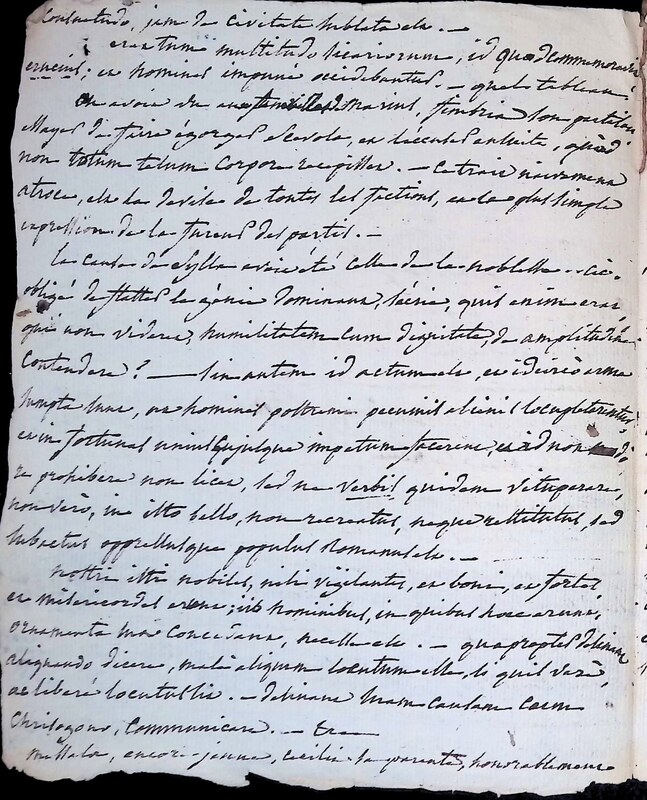 Consuetudo, jam de civitate sublata est. —
erat tum multitudo sicariorum, id quod commemoravi
et homines impune occidebantur. — quel tableau!
On avoit vu Marius, fimbria, son partisan
de faire égorger Scevola, et l'accuser ensuite, quod
non totum telum corpore recepisset. — Ce trait naivement
atroce, est la devise de toutes les factions, et la plus simple
expression de la fureur des partis. —
La cause de Sylla avoit été celle de la noblesse. — Cic.
obligé de flatter le génie dominant, s'écrie, quis enim erat,
qui non videret, humilitatem cum dignitate, de amplitudine
contendere? — Sin autem id actum est, et idcircò arma
sumpta sunt, ut homines postremi pecuniis alienis locupletarentur
et in fortunas uniuscujusque impetum facerent, et id non modò
re prohibere non licet, sed ne verbis quidem vituperare,
non verò, in isto bello, non recreatus, neque restitutus, sed
subactus oppressusque populus Romanus est. —
nostri isti nobiles, nisi vigilantes, et boni, et fortes
et misericordes erunt, iis hominibus, in quibus hæc erunt,
ornamenta sua concedant, necesse est. — quapropter desinant
aliquando dicere, malè aliquem locutum esse, si quis verè,
ac liberè locutus sit. — desinant suam causam cum
Chrisogono, communicare. —
Messala, encore jeune, cecilia sa parente, honorablement